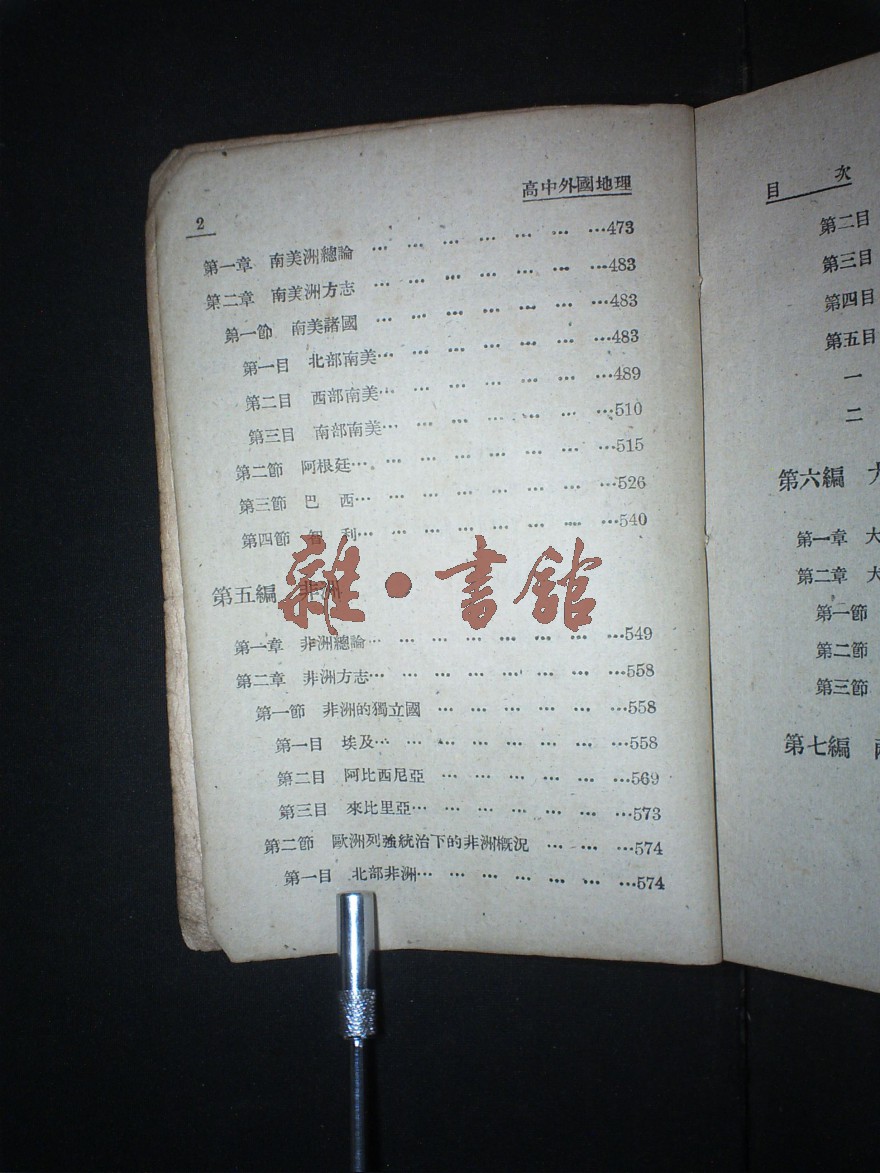 高中外國地理
2
第一章 南美洲總論 … … … … … … …473
第二章 南美洲方志 … … … … … … …483
第一節 南美諸國 … … … … … … …483
第一目 北部南美… … … … … … …483
第二目 西部南美… … … … … … …489
第三目 南部南美… … … … … … …510
第二節 阿根廷… … … … … … … …515
第三節 巴 西… … … … … … … …526
第四節 智 利… … … … … … … …540
第五編 非洲
雜·書館
第一章 非洲總論… … … … … … … …549
第二章 非洲方志… … … … … … … …558
第一節 非洲的獨立國 … … … … … …558
第一目 埃及… … … … … … … …558
第二目 阿比西尼亞 … … … … … …569
第三目 來比里亞… … … … … … …573
第二節 歐洲列強統治下的非洲概況 … … …574
第一目 北部非洲… … … … … … …574
目 次
第二目
第三目
第四目
第五目
一
二
第六編 大
第一章 大
第二章 大
第一節
第二節
第三節
第七編